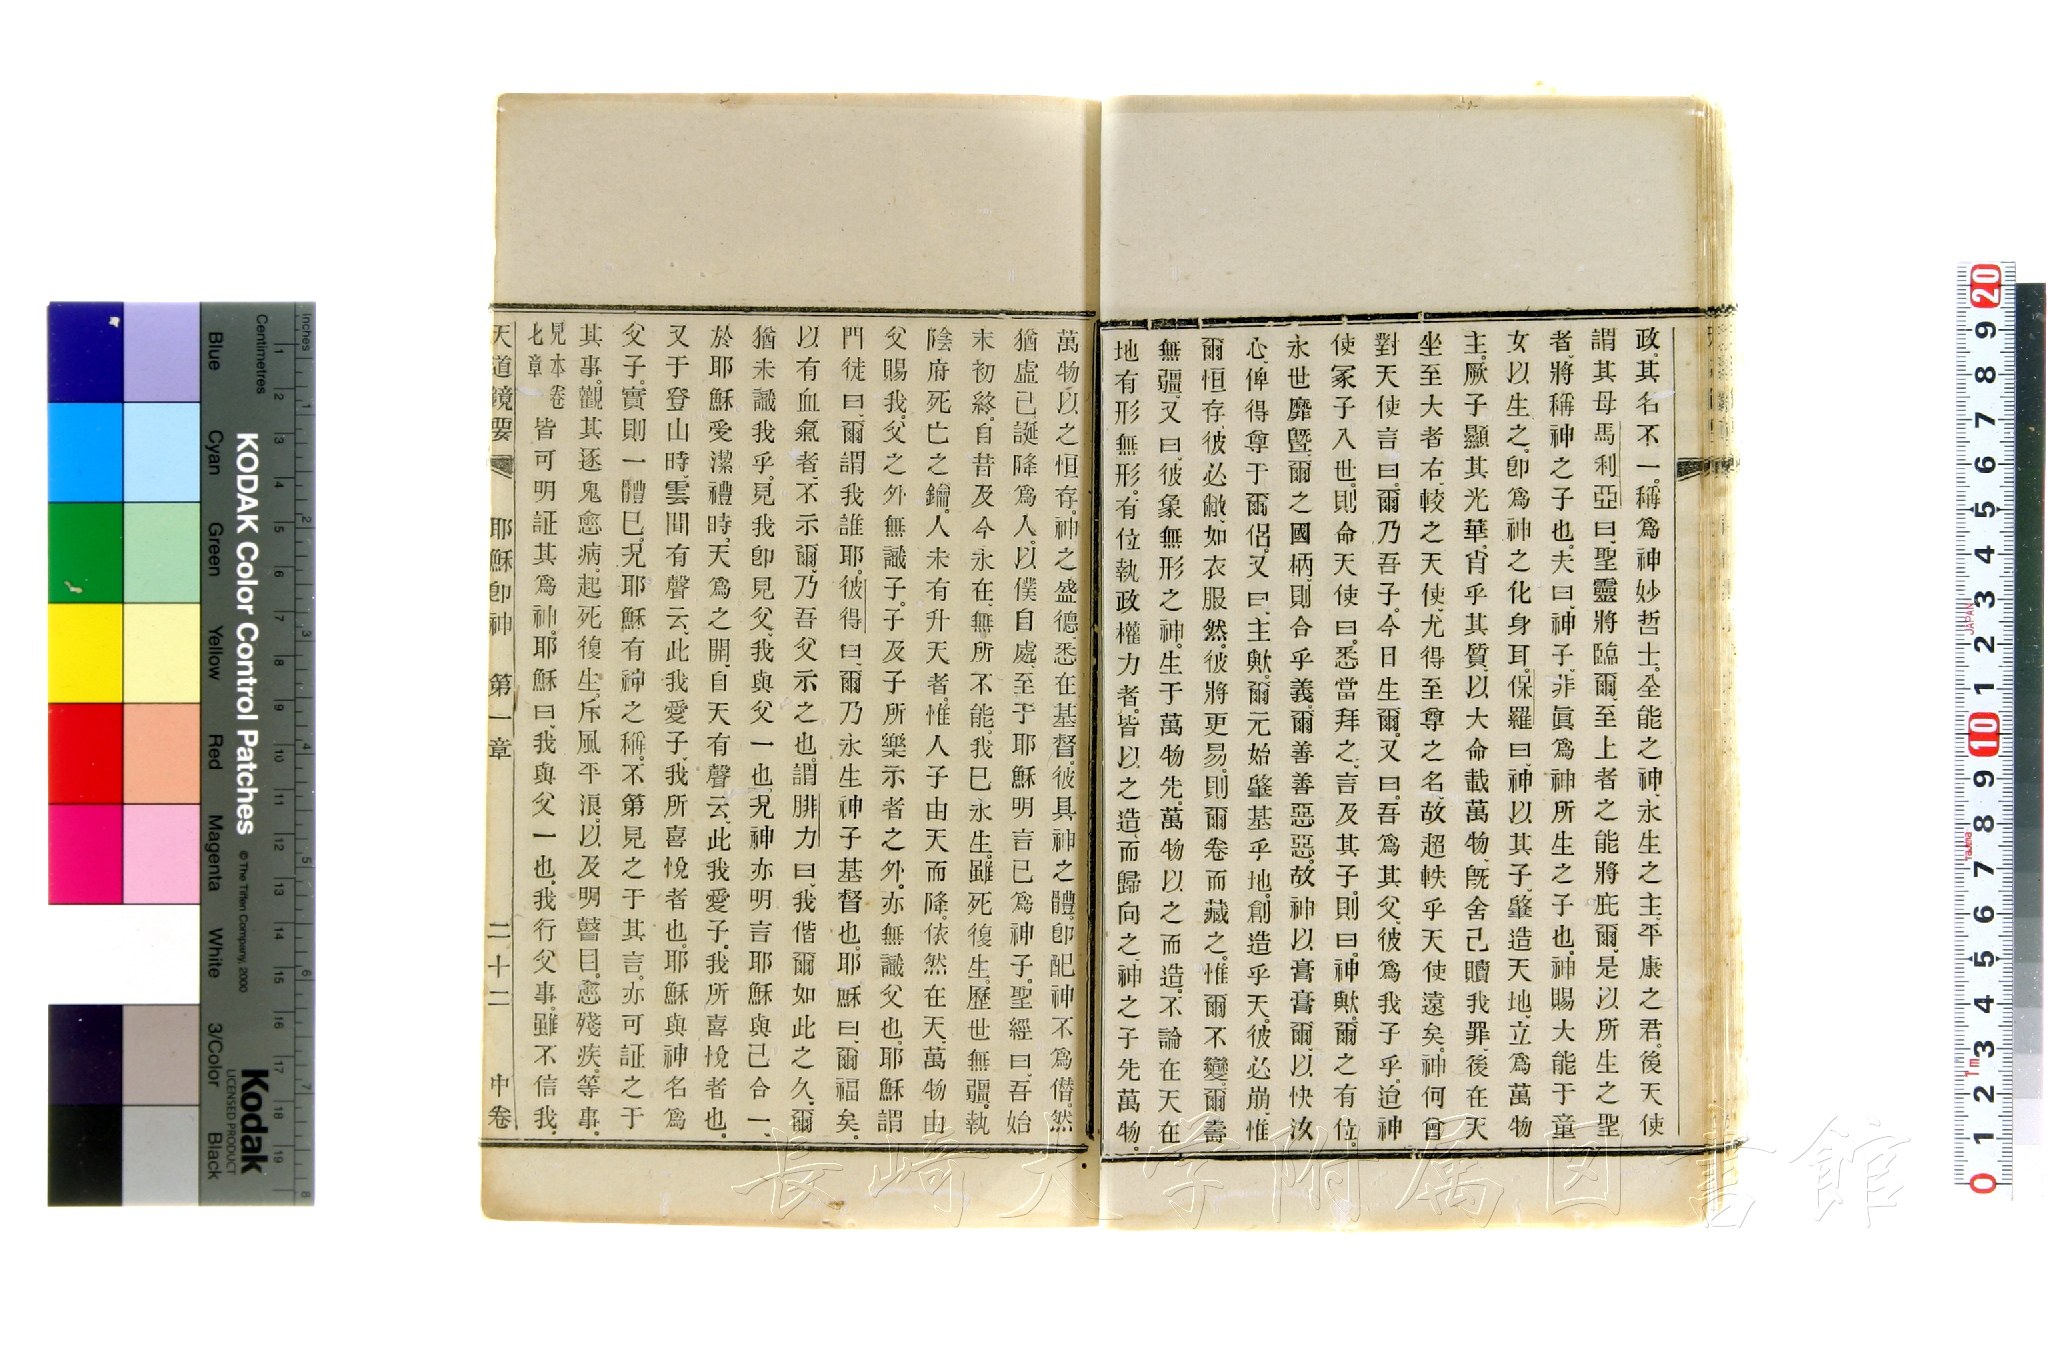 政、其名不一、稱爲神妙哲士、全能之神、永生之主、平康之君。後天使
謂其母馬利亞曰、聖靈將臨爾、至上者之能將庇爾、是以所生之聖
者、將稱神之子也。夫曰、神子、非眞爲神所生之子也、神賜大能于童
女以生之、卽爲神之化身耳。保羅曰、神以其子、肇造天地、立爲萬物
主、厥子顯其光華、肖乎其質、以大命載萬物、旣舍己贖我罪後在天
坐至大者右、較之天使、尤得至尊之名、故超軼乎天使遠矣。神何曾
對天使言曰、爾乃吾子、今日生爾。又曰、吾爲其父、彼爲我子乎。迨神
使冢子入世、則命天使曰、悉當拜之、言及其子、則曰、神歟、爾之有位。
永世靡曁、爾之國柄、則合乎義、爾善善惡惡、故神以膏膏爾、以快汝
心、俾得尊于爾侶。又曰、主歟、爾元始肇基乎地、創造乎天。彼必崩、惟
爾恒存、彼必敝、如衣服然。彼將更易、則爾卷而藏之。惟爾不變、爾壽
無疆。又曰、彼象無形之神。生于萬物先。萬物以之而造。不論在天在
地有形無形。有位執政權力者。皆以之造、而歸向之、神之子先萬物。
萬物以之恒存。神之盛德、悉在基督。彼具神之體。卽配神不爲僭。然
猶虛己誕降爲人。以僕自處、至于耶穌明言己爲神子。聖經曰、吾始
末初終。自昔及今永在、無所不能。我已永生。雖死復生。歷世無疆。執
陰府死亡之鑰。人未有升天者。惟人子由天而降。依然在天。萬物由
父賜我。父之外無識子。子及子所樂示者之外。亦無識父也。耶穌謂
門徒曰、爾謂我誰耶。彼得曰、爾乃永生神子基督也。耶穌曰、爾福矣。
以有血氣者、不示爾、乃吾父示之也。謂腓力曰、我偕爾如此之久、爾
猶未識我乎。見我卽見父、我與父一也。况神亦明言耶穌與己合一、
於耶穌受潔禮時、天爲之開、自天有聲云、此我愛子、我所喜悅者也。
又于登山時、雲間有聲云、此我愛子、我所喜悅者也、耶穌與神名爲
父子、實則一體已。况耶穌有神之稱、不第見之于其言。亦可証之于
其事。觀其逐鬼愈病、起死復生、斥風平浪。以及明瞽目、愈殘疾等事。
見本卷七章 皆可明証其爲神。耶穌曰、我與父一也、我行父事、雖不信我、
天道鏡要 耶穌卽神 第一章 二十二 中卷
KODAK Color Control Patches
© The Tiffen Company, 2000
Kodak
LICENSED PRODUCT
Inches
Centimetres
Blue Cyan Green Yellow Red Magenta White 3/Color Black
長崎大学附属図書館